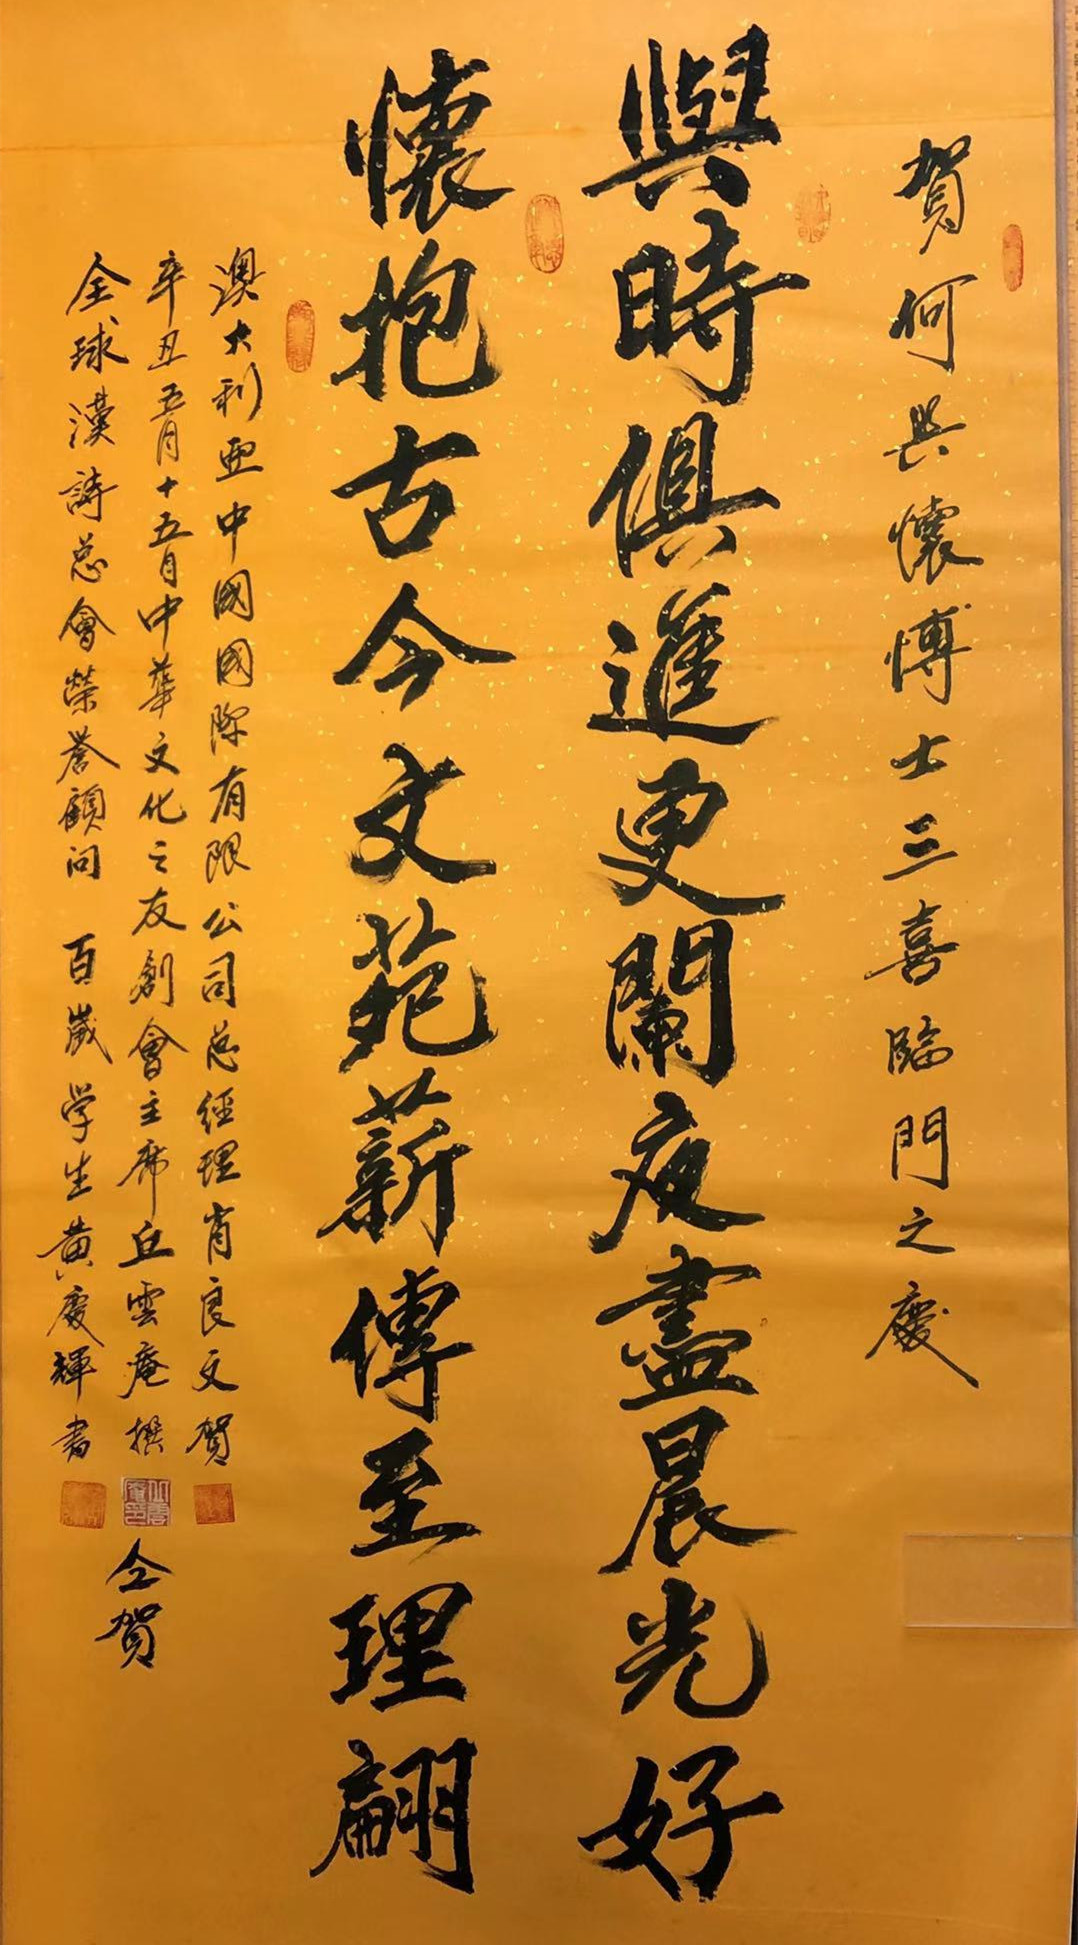 賀何與懷博士三喜臨門之慶
與時俱進更闌夜盡晨光好
懷抱古今文苑薪傳至理翩
澳大利亞中國國際有限公司总經理肖良文賀
辛丑五月十五日中華文化之友創會主席丘雲庵撰
全球漢詩总會榮誉顧问 百歲学生黄慶輝書
仝賀